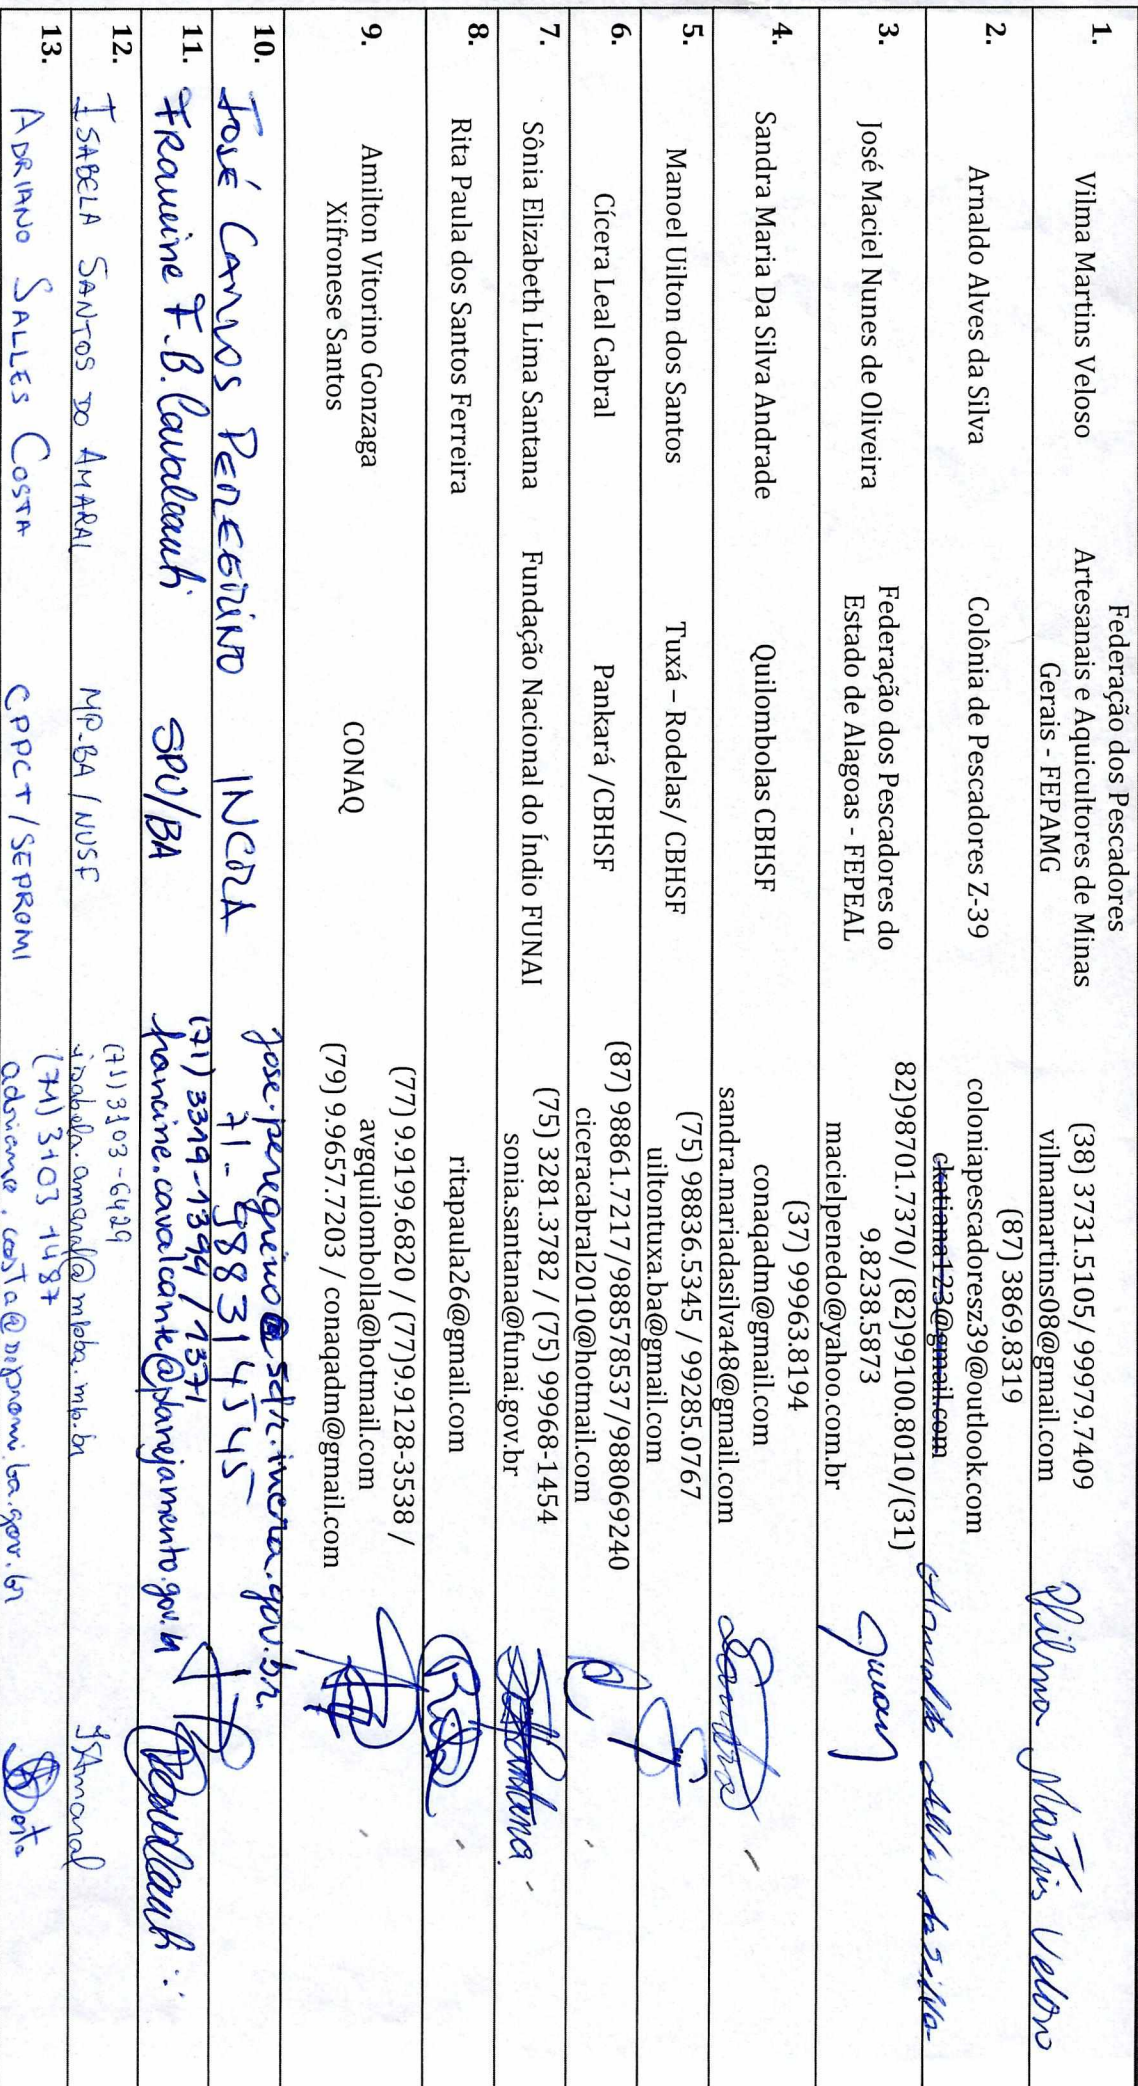 1.
Vilma Martins Veloso
Federação dos Pescadores
Artesanais e Aquicultores de Minas
Gerais - FEPAMG
(38) 3731.5105/ 99979.7409
vilmamartins08@gmail.com
Vilma Martins Veloso
2.
Arnaldo Alves da Silva
Colônia de Pescadores Z-39
(87) 3869.8319
coloniapescadoresz39@outlook.com
ckatiana123@gmail.com
Arnaldo Alves da Silva
3.
José Maciel Nunes de Oliveira
Federação dos Pescadores do
Estado de Alagoas - FEPEAL
82)98701.7370/ (82)99100.8010/(31)
9.8238.5873
macielpenedo@yahoo.com.br
4.
Sandra Maria Da Silva Andrade
Quilombolas CBHSF
(37) 99963.8194
conaqadm@gmail.com
sandra.mariadasilva48@gmail.com
Sandra
5.
Manoel Uilton dos Santos
Tuxá – Rodelas/ CBHSF
(75) 98836.5345 / 99285.0767
uiltontuxa.ba@gmail.com
6.
Cícera Leal Cabral
Pankará /CBHSF
(87) 98861.7217/988578537/988069240
ciceracabral2010@hotmail.com
7.
Sônia Elizabeth Lima Santana
Fundação Nacional do Índio FUNAI
(75) 3281.3782 / (75) 99968-1454
sonia.santana@funai.gov.br
8.
Rita Paula dos Santos Ferreira
ritapaula26@gmail.com
Rita
9.
Amilton Vitorino Gonzaga
Xifronese Santos
CONAQ
(77) 9.9199.6820 / (77)9.9128-3538 /
avgquilombolla@hotmail.com
(79) 9.9657.7203 / conaqadm@gmail.com
10.
José Carlos Peregrino
INCRA
jose.peregrino@sdr.incra.gov.br.
71-988314545
11.
Francine F.B. Cavalcanti
SPU/BA
(71) 3319-1394/1371
francine.cavalcante@planejamento.gov.br
12.
ISABELA SANTOS DO AMARAL
MP-BA/NUSF
(71) 3103-6429
isabela.amaral@mpba.mp.br
ISAmaral
13.
ADRIANO SALLES COSTA
CPPCT/SEPROMI
(71) 3103 1487
adriano.costa@sepromi.ba.gov.br